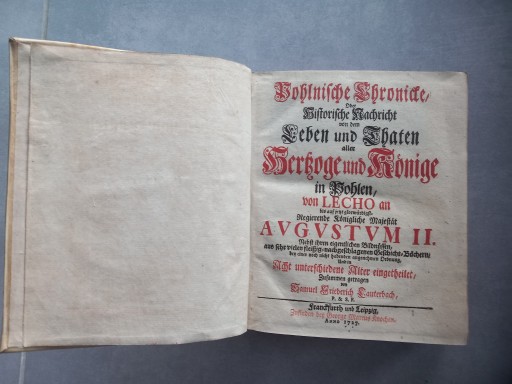 Pohlnische Chronicke,
Oder
Historische Nachricht
von dem
Leben und Thaten
aller
Hertzoge und Könige
in Pohlen,
von LECHO an
bis auf jetzt glorwürdigst-
Regierende Königliche Majestät
AVGVSTVM II.
Nebst ihren eigentlichen Bildnissen,
aus sehr vielen fleißig-nachgeschlagenen Geschicht-Büchern,
bey einer noch nicht
Ordnung,
Acht unterschiedene Alter eingetheilet,
Zusammen getragen
von
Samuel Friederich Lauterbach,
P. & S. F.
Franckfurth und Leipzig,
Zufinden bey George Marcus Knochen.
Anno 1727.